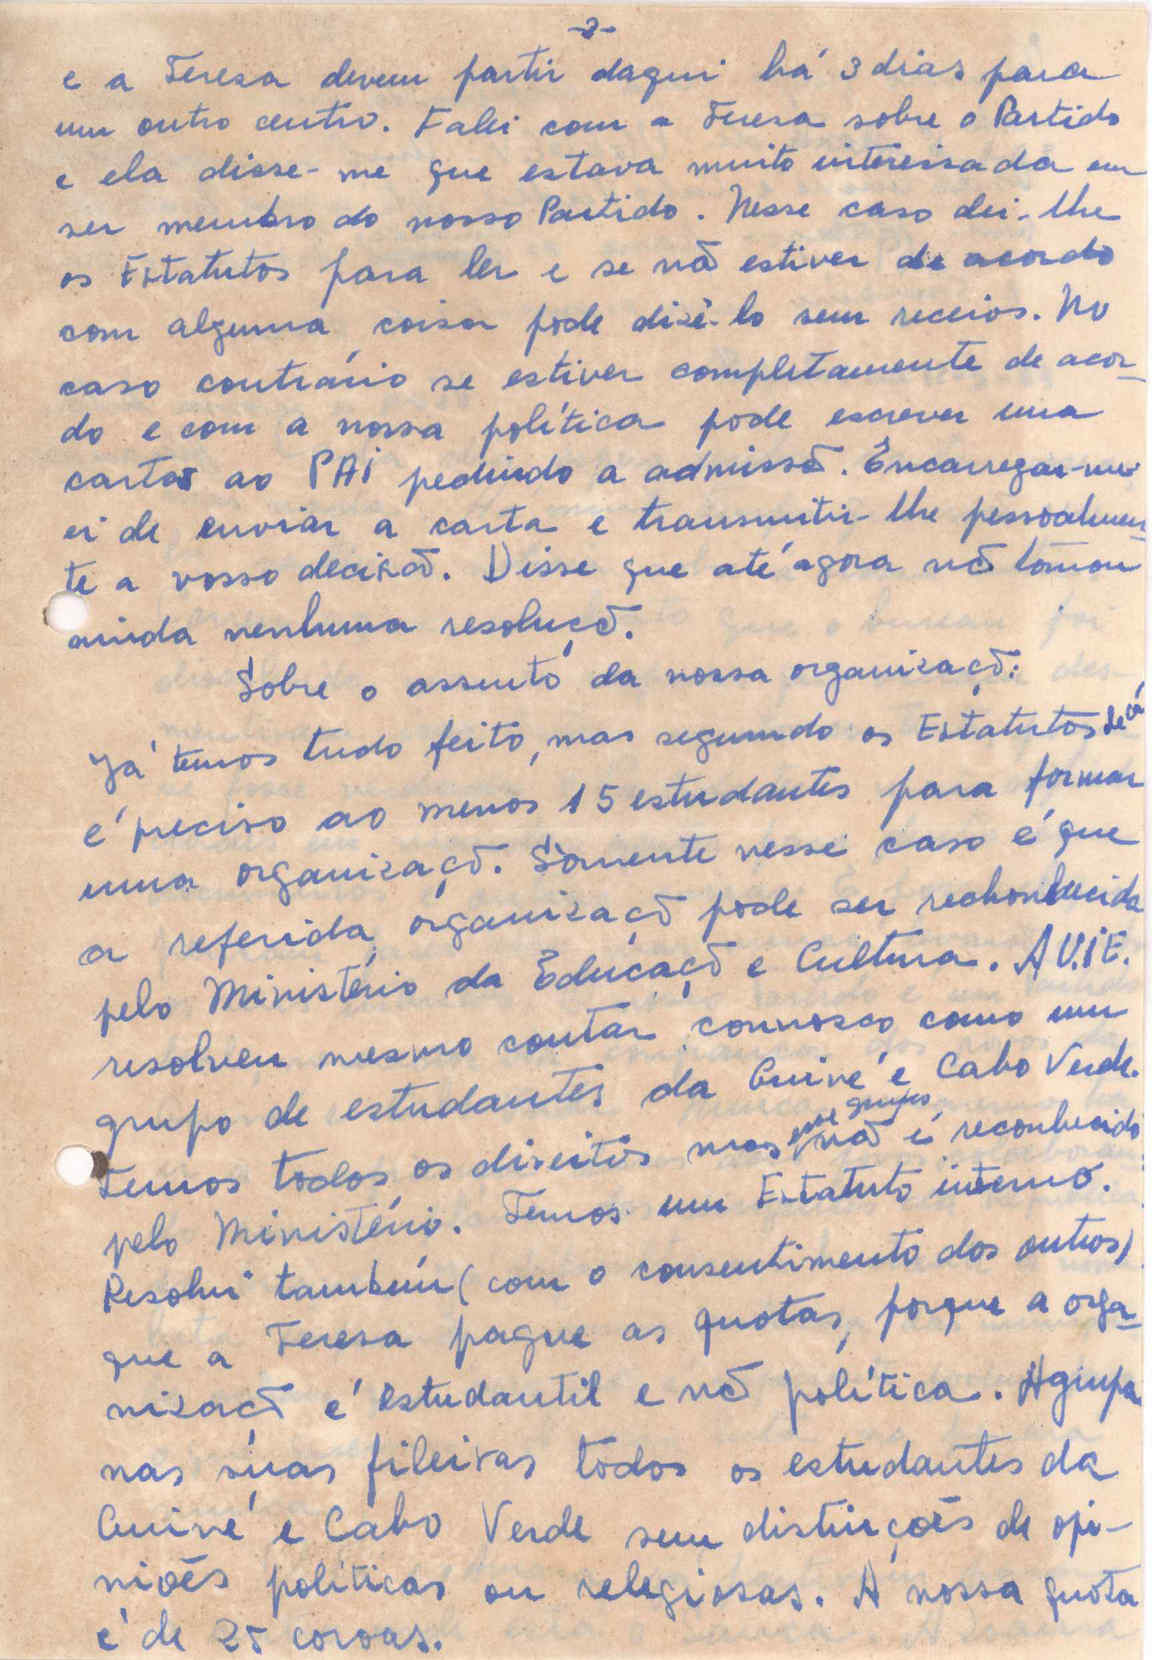 -3-
e a Teresa devem partir daqui há 3 dias para
um outro centro. Falei com a Teresa sobre o Partido
e ela disse-me que estava muito interessada em
ser membro do nosso Partido. Nesse caso dei-lhe
os Estatutos para ler e se nõ estiver de acordo
com alguma coisa pode dizê-lo sem receios. No
caso contrário se estiver completamente de acor-
do e com a nossa política pode escrever uma
carta ao PAI pedindo a admissõ. Encarregar-me-
ei de enviar a carta e transmitir-lhe pessoalmen-
te a vosso decisaõ. Disse que até agora nõ tomou
ainda nenhuma resoluçõ.
Sobre o assunto da nossa organizaçõ:
Já temos tudo feito, mas segundo os Estatutos de cá
é preciso ao menos 15 estudantes para formar
uma organizaçõ. Sòmente nesse caso é que
a referida organizaçõ pode ser rechonhecida
pelo Ministério da Educaçõ e Cultura. A U.I.E.
resolveu mesmo contar connosco como um
grupo de estudantes da Guiné e Cabo Verde.
Temos todos os direitos mas esse grupo nõ é reconhecido
pelo Ministério. Temos um Estatuto interno.
Resolvi também (com o consentimento dos outros)
que a Teresa pague as quotas, porque a orga-
nizacõ é estudantil e nõ política. Agrupa
nas suas fileiras todos os estudantes da
Guiné e Cabo Verde sem distinções de opi-
niões políticas ou relegiosas. A nossa quota
é de 25 coroas.